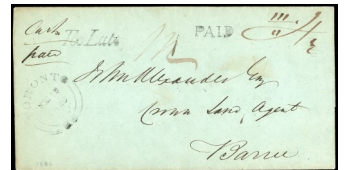 Cash Too Late PAID
paid
TORONTO
John Alexander Esq
Crown Land Agent
Barrie